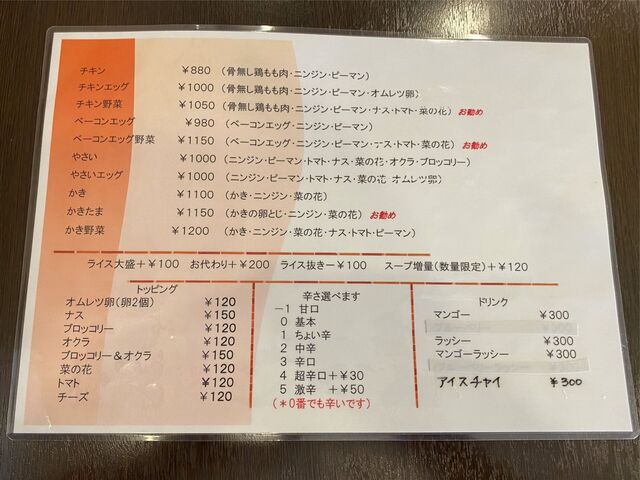 チキン ￥880 （骨無し鶏もも肉・ニンジン・ピーマン）
チキンエッグ ￥1000 （骨無し鶏もも肉・ニンジン・ピーマン・オムレツ卵）
チキン野菜 ￥1050 （骨無し鶏もも肉・ニンジン・ピーマン・ナス・トマト・菜の花） お勧め
ベーコンエッグ ￥980 （ベーコンエッグ・ニンジン・ピーマン）
ベーコンエッグ野菜 ￥1150 （ベーコンエッグ・ニンジン・ピーマン・ナス・トマト・菜の花） お勧め
やさい ￥1000 （ニンジン・ピーマン・トマト・ナス・菜の花・オクラ・ブロッコリー）
やさいエッグ ￥1000 （ニンジン・ピーマン・トマト・ナス・菜の花 オムレツ卵）
かき ￥1100 （かき・ニンジン・菜の花）
かきたま ￥1150 （かきの卵とじ・ニンジン・菜の花） お勧め
かき野菜 ￥1200 （かき・ニンジン・菜の花・ナス・トマト・ピーマン）
ライス大盛＋￥100 お代わり＋￥200 ライス抜きー￥100 スープ増量（数量限定）＋￥120
トッピング
オムレツ卵（卵2個） ￥120
ナス ￥150
ブロッコリー ￥120
オクラ ￥120
ブロッコリー＆オクラ ￥150
菜の花 ￥120
トマト ￥120
チーズ ￥120
辛さ選べます
－1 甘口
0 基本
1 ちょい辛
2 中辛
3 辛口
4 超辛口＋￥30
5 激辛 ＋￥50
（＊0番でも辛いです）
ドリンク
マンゴー ￥300
ラッシー ￥300
マンゴーラッシー ￥300
アイスチャイ ￥300